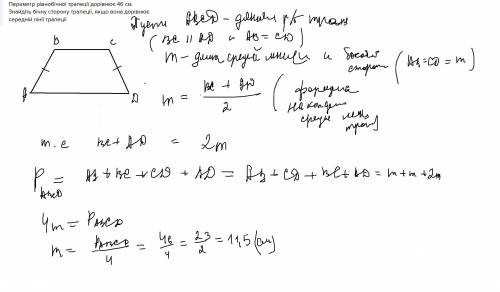 Периметр рівнобічної трапеції дорівнює 46 см.
Знайдіть бічну сторону трапеції, якщо вона дорівнює
середній лінії трапеції
Пусть ABCD - данная р/б трап
(BC || AD и AB = CD)
B C
A D
m - длина средней линии и боковая сторон (AB = CD = m)
m = BC + AD / 2 (формула нахожден средне лин трап)
т.е BC + AD = 2m
P ABCD = AB + BC + CD + AD = AB + CD + BC + AD = m + m + 2m
4m = P ABCD
m = P ABCD / 4 = 46 / 4 = 23 / 2 = 11,5 (см)